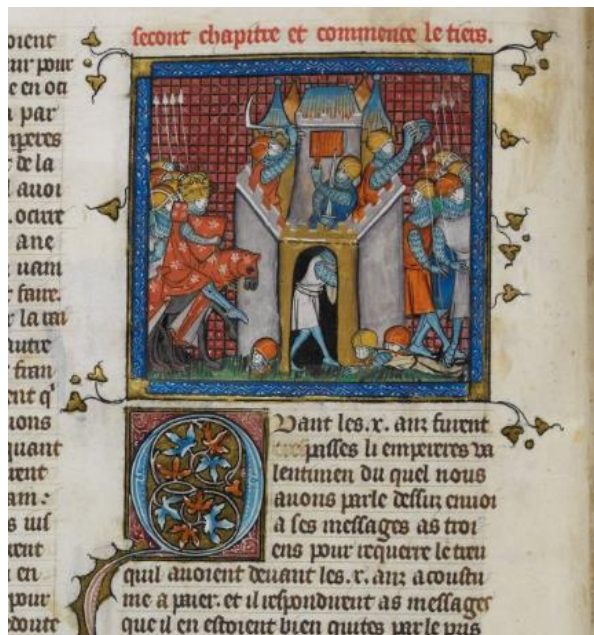 oient
ur pour
e en oci
a par
mperes
de la
l auoi
. ocirre
ane
uam
faire.
autre
fran
ent q'
ions
quant
en
pour
doute
secont chapitre et commence le tiers.
Quant les .x. anz furent
trespasses li empereres va
lentinien du quel nous
auons parle dessuz enuoi
a ses messages as troi
ens pour requerre le treu
quil auoient deuant les .x. anz acoustu
me a paier. et il respondirent as messages
que il en estoient bien quites par le pris